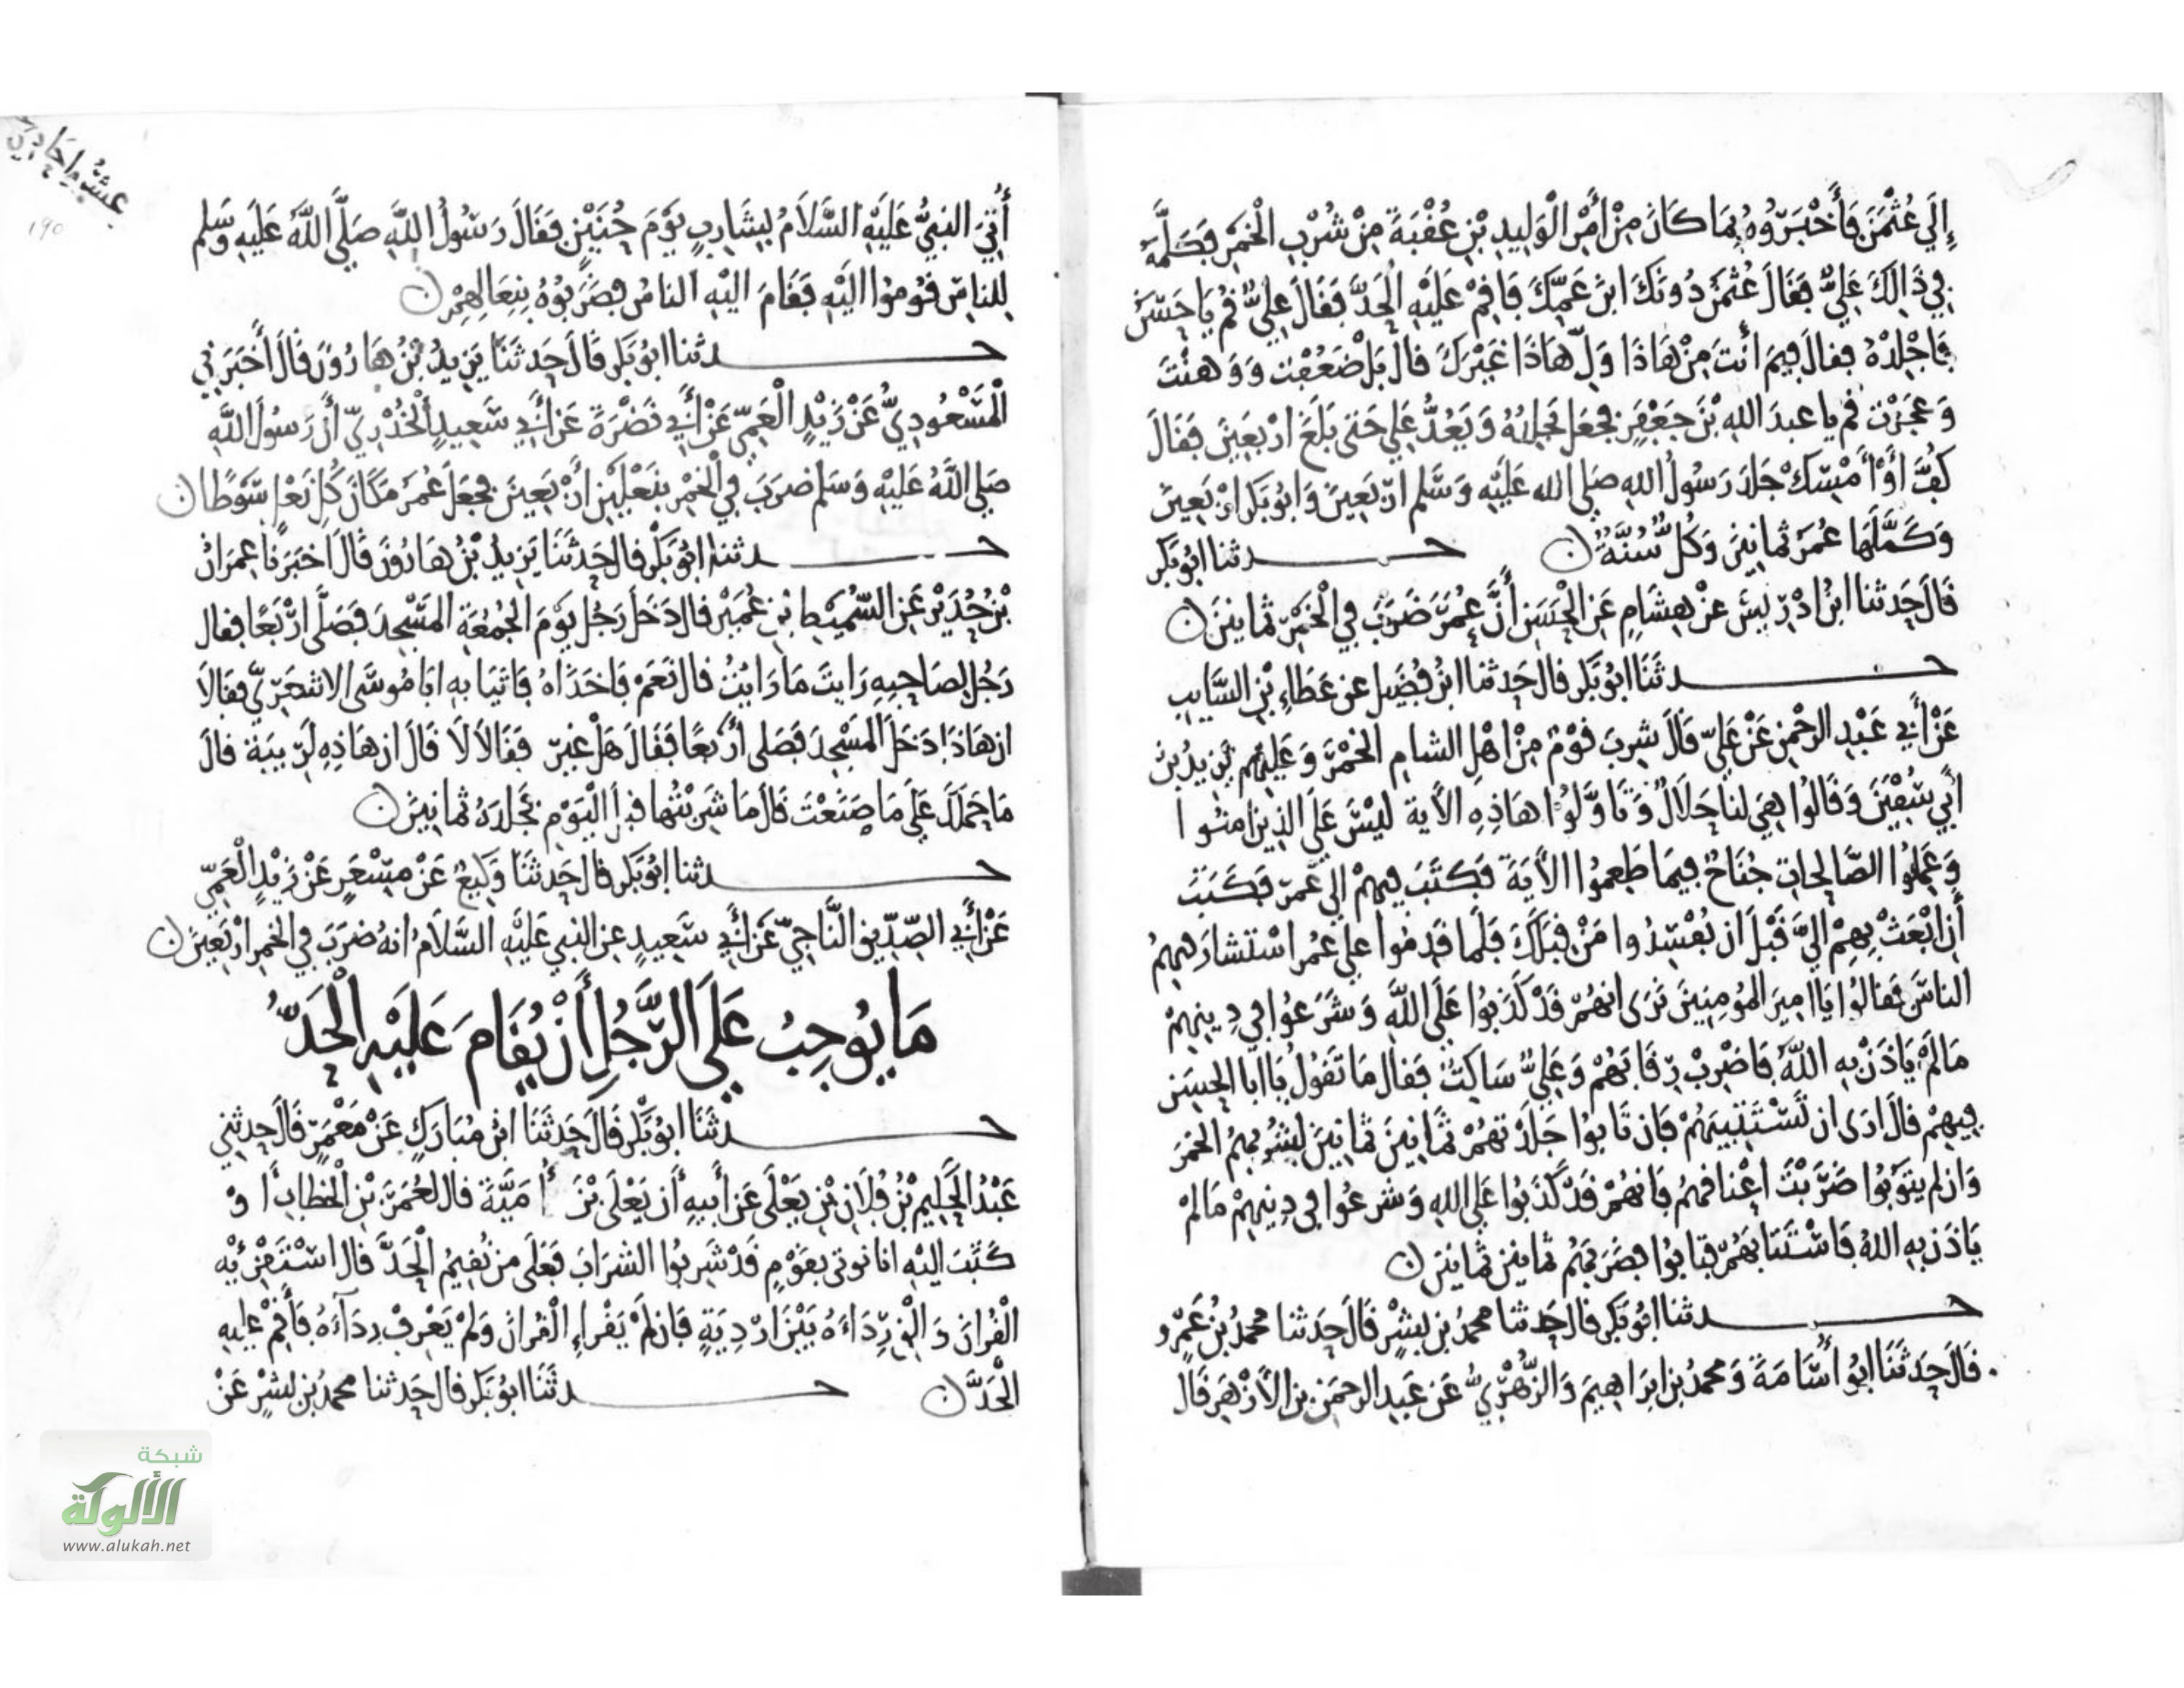 إِلَى عُثْمَنَ فَأَخْبَرُوهُ بِمَا كَانَ مِنْ أَمْرِ الْوَلِيدِ بْنِ عُقْبَةَ مِنْ شُرْبِ الْخَمْرِ فَكَلَّمَهُ
فِي ذَالِكَ عَلِيٌّ فَقَالَ عُثْمَنُ دُونَكَ ابْنَ عَمِّكَ فَأَقِمْ عَلَيْهِ الْحَدَّ فَقَالَ عَلِيٌّ قُمْ يَا حَسَنُ
فَاجْلِدْهُ فقالَ فِيمَ أَنْتَ مِنْ هَاذَا وَلِّ هَاذَا غَيْرَكَ قال بَلْ ضَعُفْتَ وَوَهنْتَ
وَعَجَزْتَ قم يا عبدَ اللهِ بْنَ جَعْفَرٍ فجعَلَ يَجْلِدُهُ وَيَعُدُّ عَلِي حَتى بَلَغَ ارْبَعِينَ فَقَالَ
كُفَّ اوْ أَمْسِكْ جَلَدَ رَسُولُ اللهِ صلى الله عَلَيْهِ وَسَلم ارْبَعِينَ وَابُو بَكرٍ ارْبَعِينَ
وَكَمَّلَهَا عُمَرُ ثمانِينَ وَكُلٌّ سُنَّةٌ ن حـدثنا ابُو بَكر
قَالَ حَدثنا ابْنُ ادْرِيسَ عنْ هِشَامٍ عَنِ الْحَسَنِ أَنَّ عُمَرَ ضَرَبَ فِي الْخَمْرِ ثمانِينَ ن
حـدثَنَا ابُو بَكر قال حَدثنا ابْنُ فُضَيلٍ عن عَطَاءِ بْنِ السَّايِبِ
عَنْ أَبِي عَبْدِ الرحْمنِ عَنْ عَلِيّ قالَ شرِبَ قَوْمٌ مِنْ اهْلِ الشامِ الخمْرَ وَعَلَيْهِم يَزِيدُ بْنُ
أَبِي سُفْيَنَ وَقَالُوا هِيَ لنا حَلَالٌ وَتَاوَّلُوا هَاذِهِ الآيةَ ليْسَ عَلَى الذِينَ امنُوا
وَعَمِلُوا الصَّالِحاتِ جُنَاحٌ فِيمَا طَعِمُوا الآيَةَ فَكَتَبَ فِيهِمْ إلى عُمَرَ فَكَتَبَ
أَنِ ابْعَثْ بِهِمْ الَيَّ قَبْلَ ان يُفْسِدُوا مَنْ قِبَلَكَ فَلَما قَدِمُوا على عُمَر اسْتشارَ فِيهِمُ
الناسَ فقالوا يَا امِيرَ المُومِنِينَ نَرَى انهُمْ قَدْ كَذَبُوا عَلَى اللَّهِ وَشَرَعُوا فِي دِينِهِمْ
مَا لَمْ يَاذَنْ بِهِ اللَّهُ فَاضْرِبْ رِقَابَهُمْ وَعَلِيٌّ سَاكِتٌ فقالَ مَا تَقُولُ يَا ابَا الْحَسَنِ
فِيهِمْ قالَ ارَى ان تَسْتَتِيبَهُمْ فَإن تَابُوا جَلَدْتَهُمْ ثَمَانِينَ ثَمَانِينَ لِشُرْبِهِمُ الخمْرَ
وَان لم يَتُوبُوا ضَرَبْتَ اعْنَاقَهُمْ فَانهُمْ قَدْ كَذَبُوا عَلَى اللهِ وَشَرعُوا في دِينِهِمْ مَا لمْ
يَاذَن بِهِ اللهُ فَاسْتَتَابَهُمْ فتَابُوا فضَرَبَهُمْ ثمانِينَ ثمانِينَ ن
حـدثنا ابُو بَكر قال حَدثنا محمدُ بن بِشْرٍ قَالَ حَدثنا محمدُ بْنُ عَمْرٍو
قَالَ حَدثَنَا ابُو أُسَامَةَ وَمحمدُ بن ابرَاهِيمَ وَالزُّهْرِيُّ عَن عَبدِ الرحمَنِ بن الأَزْهَرِ قَالَ
عشرة احاديث
١٩٥
أُتِيَ النبِيُّ عَلَيْهِ السَّلَامُ بِشَارِبٍ يَوْمَ حُنَيْنٍ فَقَالَ رَسُولُ اللَّهِ صَلَّى اللَّهُ عَلَيْهِ وَسَلم
لِلناسِ قُومُوا الَيْهِ فَقَامَ اليْهِ الناسُ فضَرَبُوهُ بِنِعَالِهِمْ ن
حـدثنا ابُو بَكر قَالَ حَدثَنَا يَزِيدُ بْنُ هَارُونَ قَالَ أَخْبَرَنِي
الْمَسْعُودِيُّ عَنْ زَيْدٍ الْعَمِيّ عَنْ أَبِي نَضْرَةَ عَنْ أَبِي سَعِيدٍ الْخُدْرِيّ أَنَّ رَسُولَ اللَّهِ
صَلى اللَّهُ عَلَيْهِ وَسَلم ضرَبَ فِي الْخَمْرِ بِنَعْلَيْنِ أَرْبَعِينَ فجَعَلَ عُمَرُ مَكَانَ كُلِّ نَعْلٍ سَوْطًا ن
حـدثنا ابُو بَكْر قال حَدثَنَا يَزِيدُ بْنُ هَارُونَ قَالَ اخبَرَنا عِمرَانُ
بْنُ حُدَيْرٍ عَنِ السُّمَيْطِ ابْنِ عُمَيْرٍ قال دَخَلَ رَجُلٌ يَوْمَ الجُمُعَةِ المَسْجِدَ فَصَلَّى ارْبَعًا فقال
رَجُلٌ لِصَاحِبِهِ رَايتَ مَا رَايْتُ قال نَعَمْ فَاخَذَاهُ فَاتَيَا بِهِ ابَا مُوسَى الاشعَرِيّ فقَالَا
ان هَاذَا دَخَلَ المَسْجِدَ فَصَلى أرْبَعًا فَقَالَ هَلْ غيْرُ فَقَالَا لَا قَالَ ان هَاذِهِ لَرِيبَة قالَ
مَا حَمَلَكَ عَلَى مَا صَنَعْتَ قَالَ مَا شَرِبْتُهَا قبلَ الْيَوْمِ فجَلَدَهُ ثمانِينَ ن
حـدثنا ابُو بَكر قال حَدثَنَا وَكِيعٌ عَنْ مِسْعَرٍ عَنْ زَيْدٍ الْعَمِيّ
عَنْ أَبِي الصِّدِّيقِ النَّاجِيّ عَنْ أَبِي سَعِيدٍ عنِ النبي عَلَيْهِ السَّلَامُ انهُ ضَرَبَ فِي الخمرِ ارْبَعِينَ ن
مَا يُوجِبُ عَلَى الرَّجُلِ أَنْ يُقَامَ عَلَيْهِ الْحَدُّ
حـدثَنَا ابُو بَكْر قَالَ حَدثَنَا ابْنُ مُبَارَكٍ عَنْ مَعْمَرٍ قَالَ حدثنِي
عَبْدُ الْحَلِيمِ بْنُ فُلَانِ بْنِ يَعْلَى عَنْ أَبِيهِ أَن يَعْلَى بْنَ أُمَيَّةَ قال لعُمَرَ بْنِ الْخطابِ أَوْ
كَتَبَ الَيْهِ انا نوتى بقوْمٍ قَدْ شَرِبُوا الشرَابَ فَعَلَى مَنْ نُقِيمُ الْحَدَّ قال اسْتَقْرِئهِ
الْقُرانَ وَالْقِ رِدَاءَهُ بَيْنَ ارْدِيَةٍ فَان لَمْ يَقْراءِ الْقُرانَ وَلمْ يَعْرِفْ رِدَآءَهُ فَأَقِمْ عليهِ
الْحَدَّ ن حـدثَنَا ابُو بَكر قال حَدثنا محمدُ بن بشْرٍ عَنْ
شبكة
الألوكة
www.alukah.net